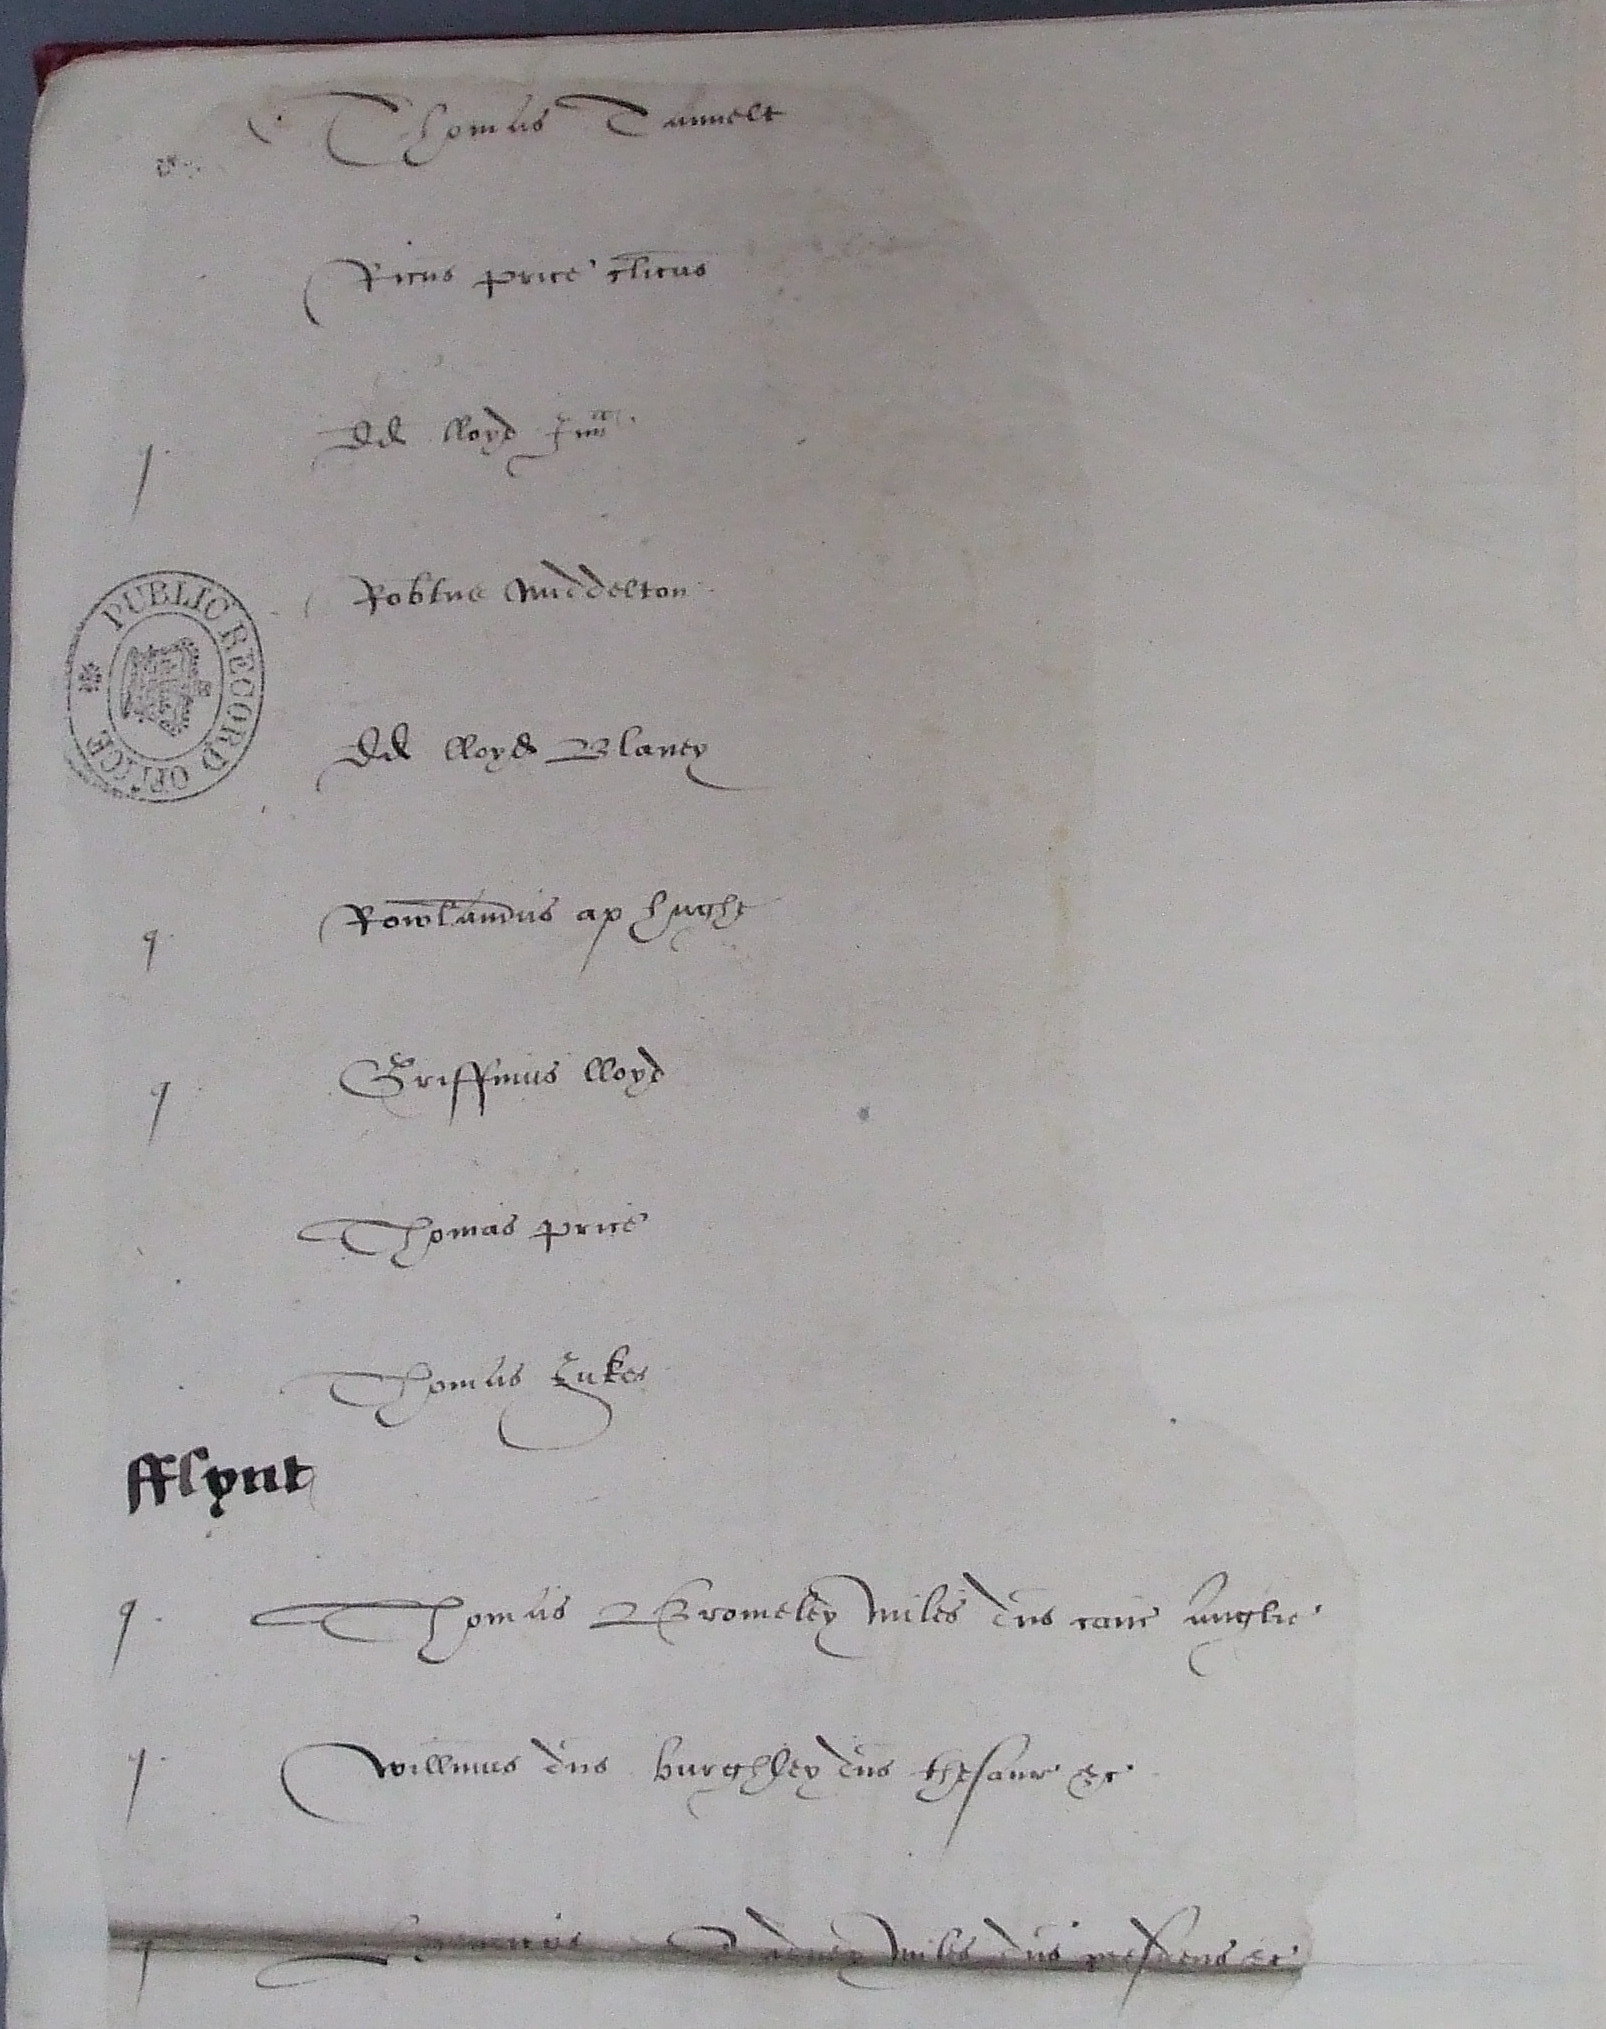 Thomas Tannett
Ricus Price clicus
q. Dd lloyd Jun
PUBLIC RECORD OFFICE
Robtus Middelton
Dd lloyd Blaney
q. Rowlandus ap hughe
q Griffinus lloyd
Thomas Price
Thomas Jukes
fflynt
q. Thomas Bromeley Miles dns canc Anglie
q. Willmus dns Burghley dns thesaur &c
q Henricus Sidney Miles dns presidens &c